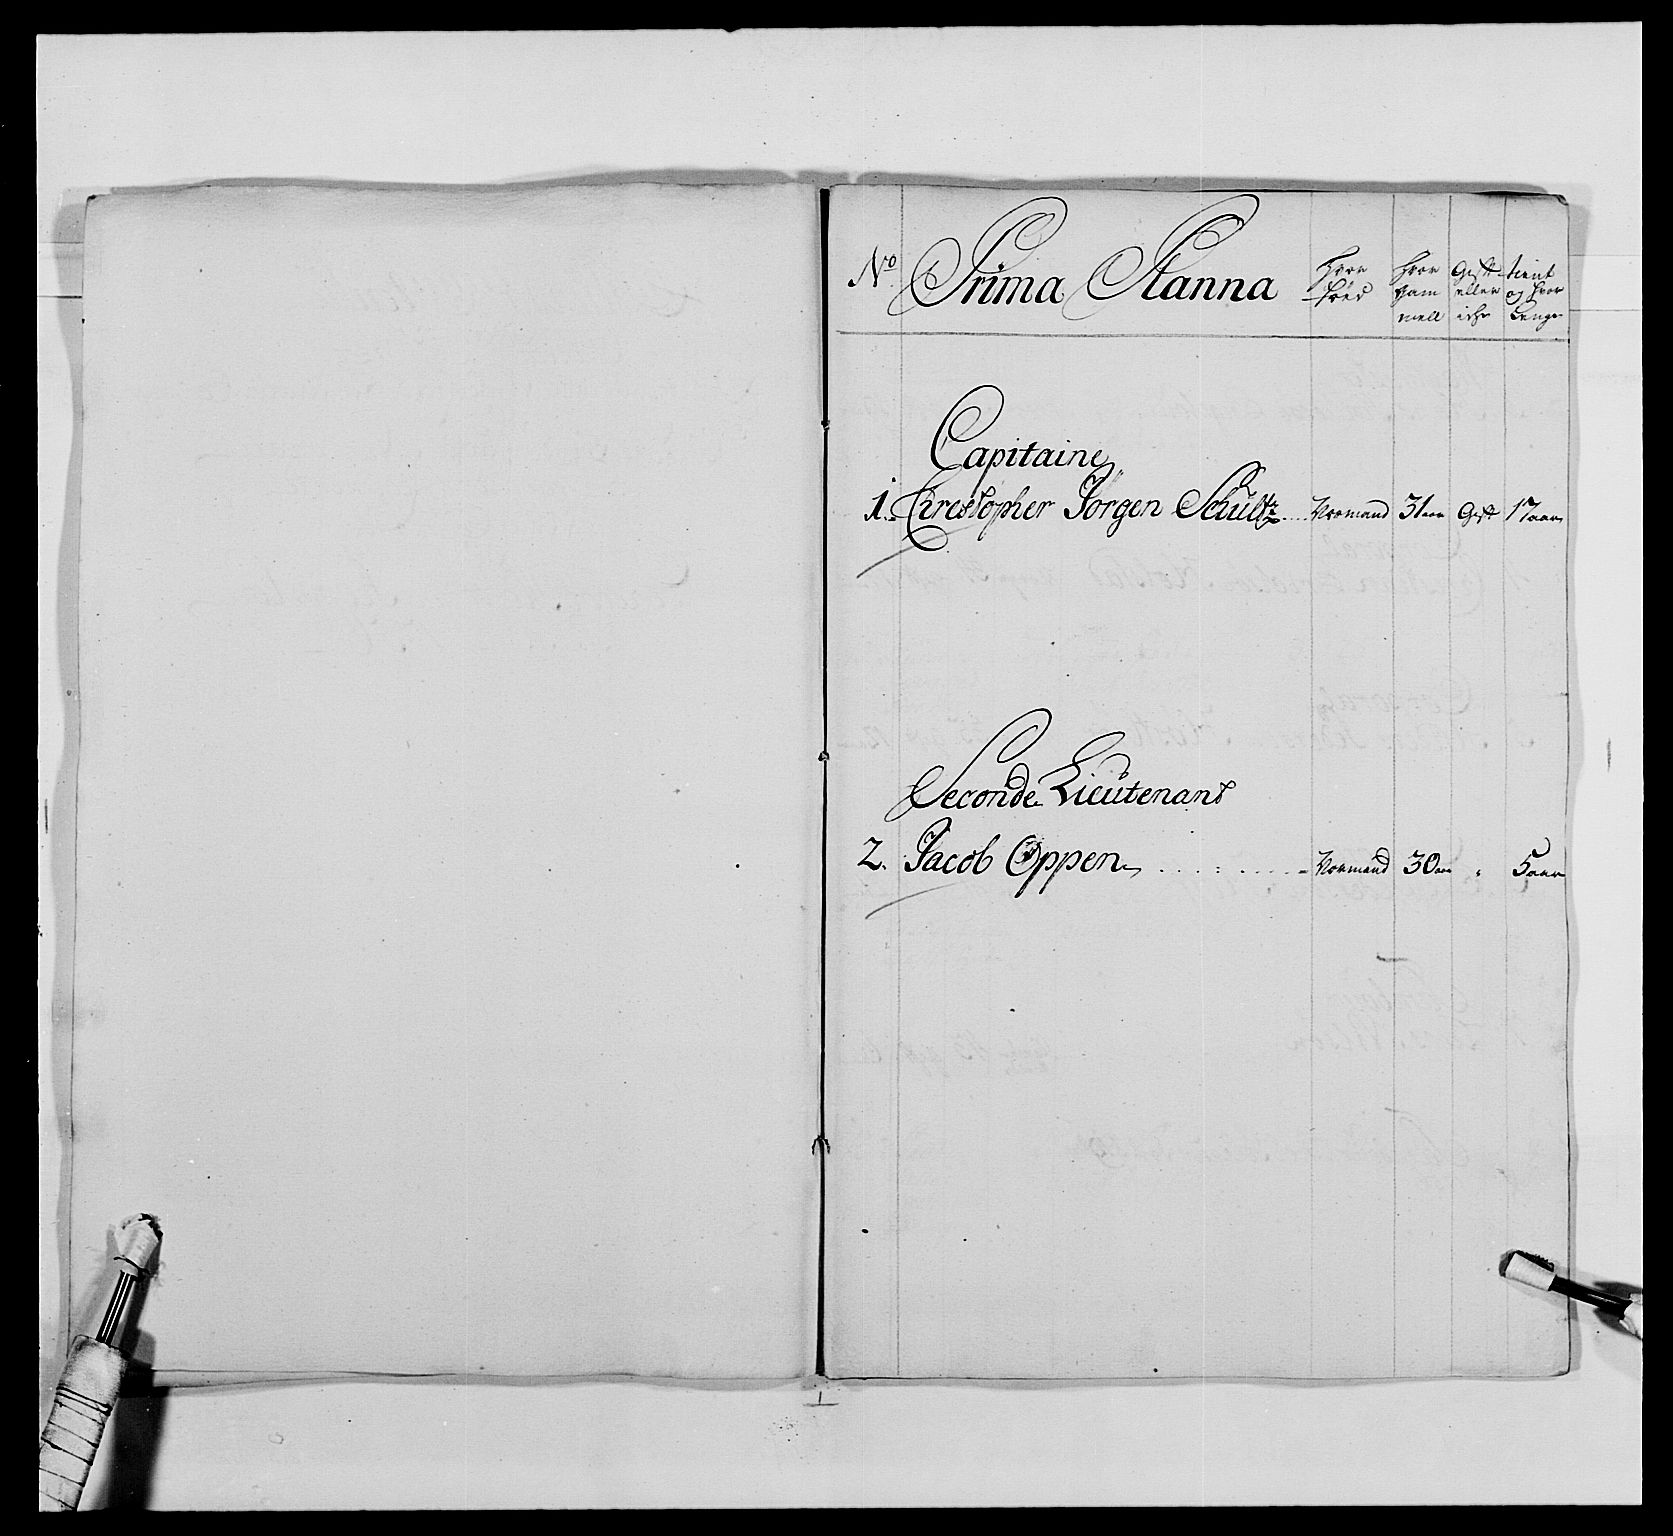 No Prima Plana Hvor født Hvor gammell Gift eller icke tient og hvor lenge
Capitaine
1. Chrestopher Jörgen Schültz Normand 31 aar Gift 17 aar
Seconde Lieütenant
2. Jacob Oppen Normand 30 aar " 5 aar